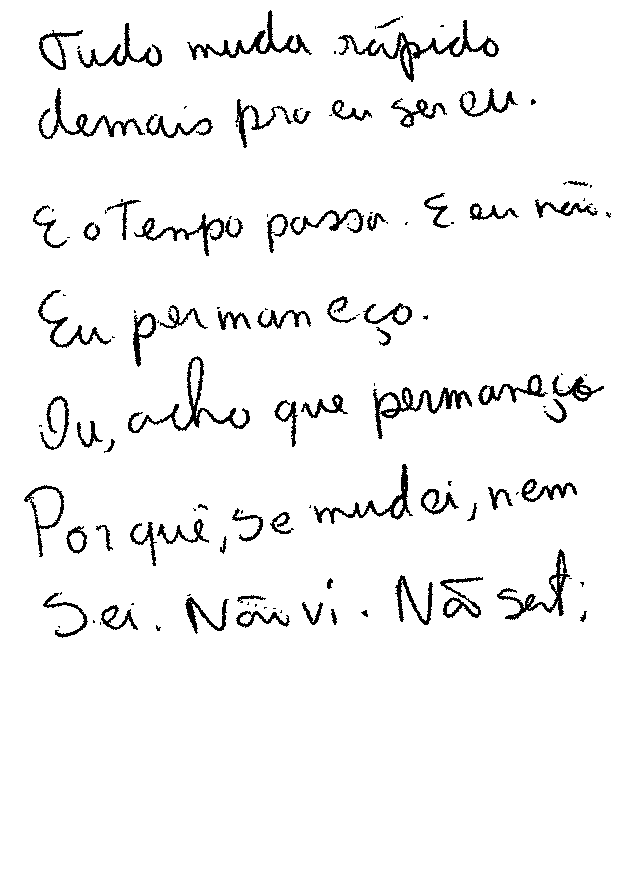 Tudo muda rápido
demais pro eu ser eu.
E o Tempo passa. E eu não.
Eu permaneço.
Ou, acho que permaneço
Por quê, se mudei, nem
sei. Não vi. Não